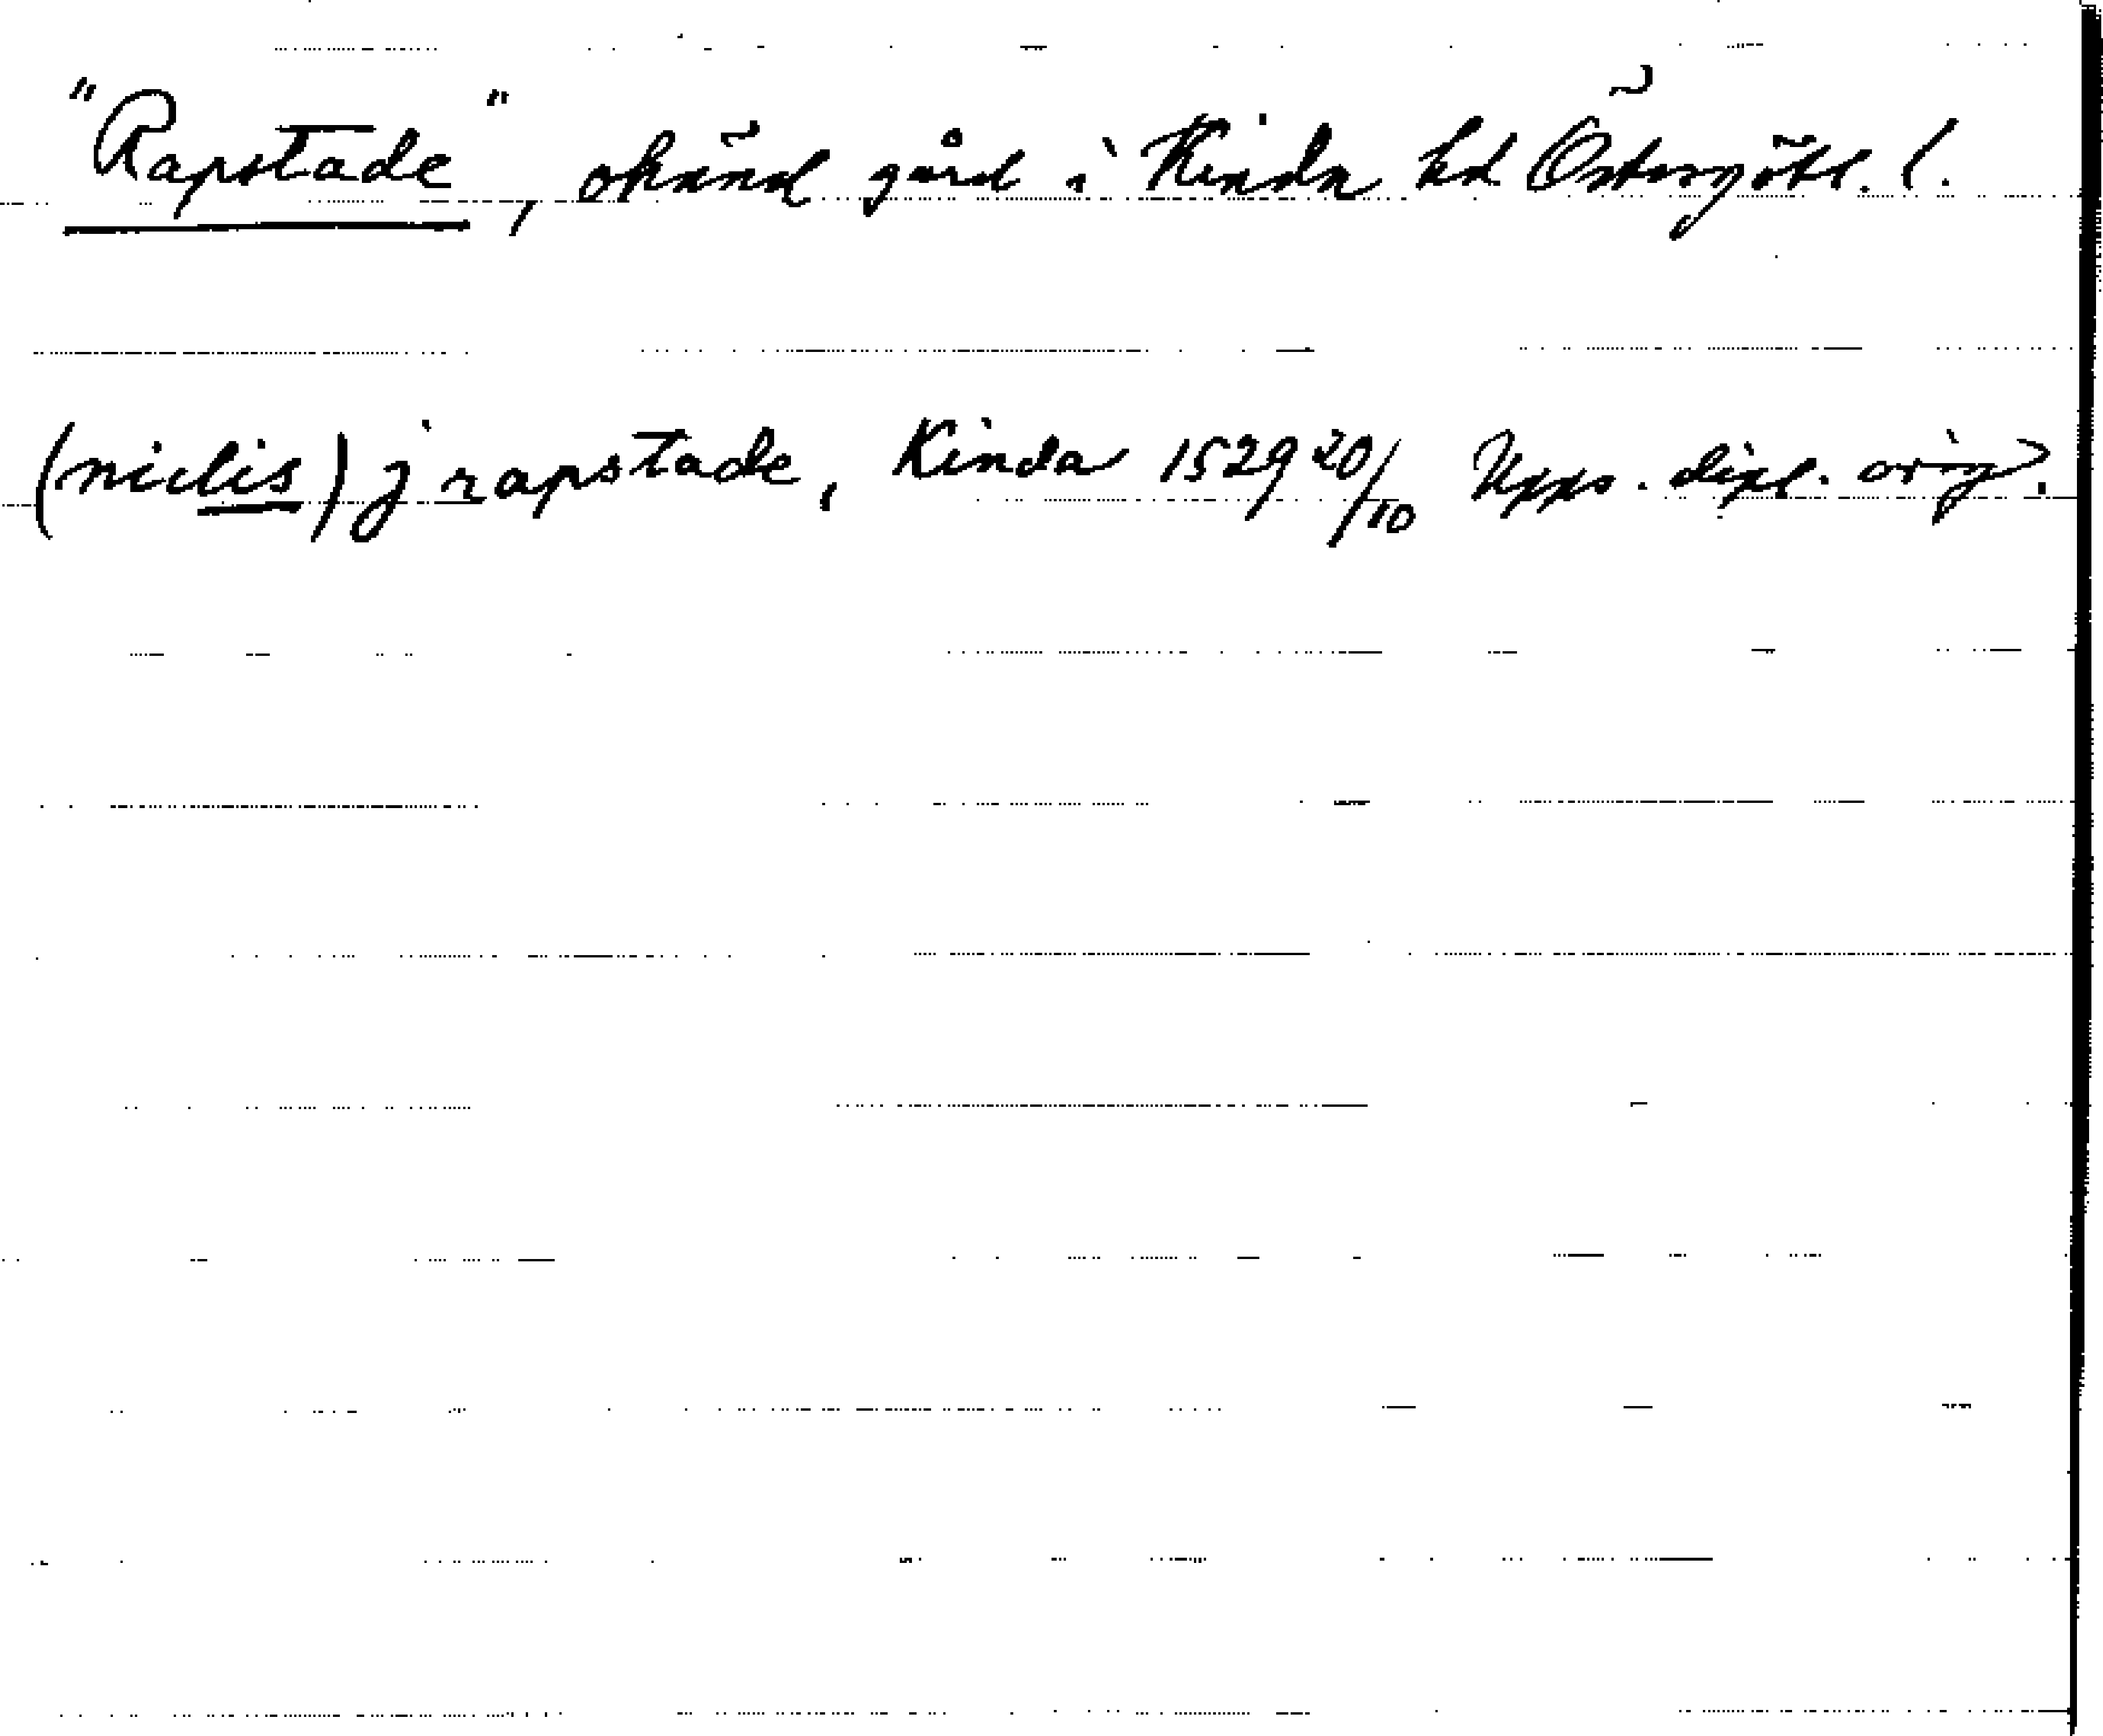 "Rapstade", okänd gård i Kinda hd Östergötl. l.
(niclis) j rapstade, Kinda 1529 20/10 Upps. dipl. orig.